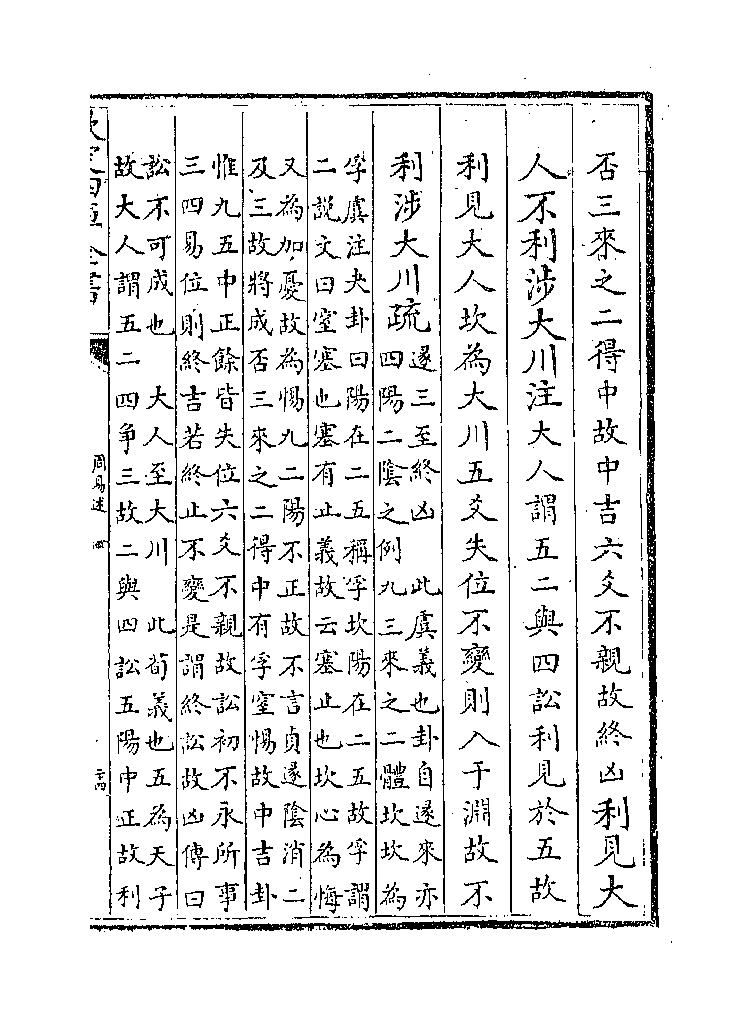 否三來之二得中故中吉六爻不親故終凶利見大
人不利涉大川注大人謂五二與四訟利見於五故
利見大人坎為大川五爻失位不變則入于淵故不
利涉大川疏
遂三至終凶　此虞義也卦自遂來亦
四陽二隂之例九三來之二體坎坎為
孚虞注夬卦曰陽在二五稱孚坎陽在二五故孚謂
二説文曰窒塞也塞有止義故云塞止也坎心為悔
又為加憂故為惕九二陽不正故不言貞遂隂消二
及三故將成否三來之二得中有孚窒惕故中吉卦
惟九五中正餘皆失位六爻不親故訟初不永所事
三四易位則終吉若終止不變是謂終訟故凶傳曰
訟不可成也　大人至大川　此荀義也五為天子
故大人謂五二四争三故二與四訟五陽中正故利
欽定四庫全書
周易述